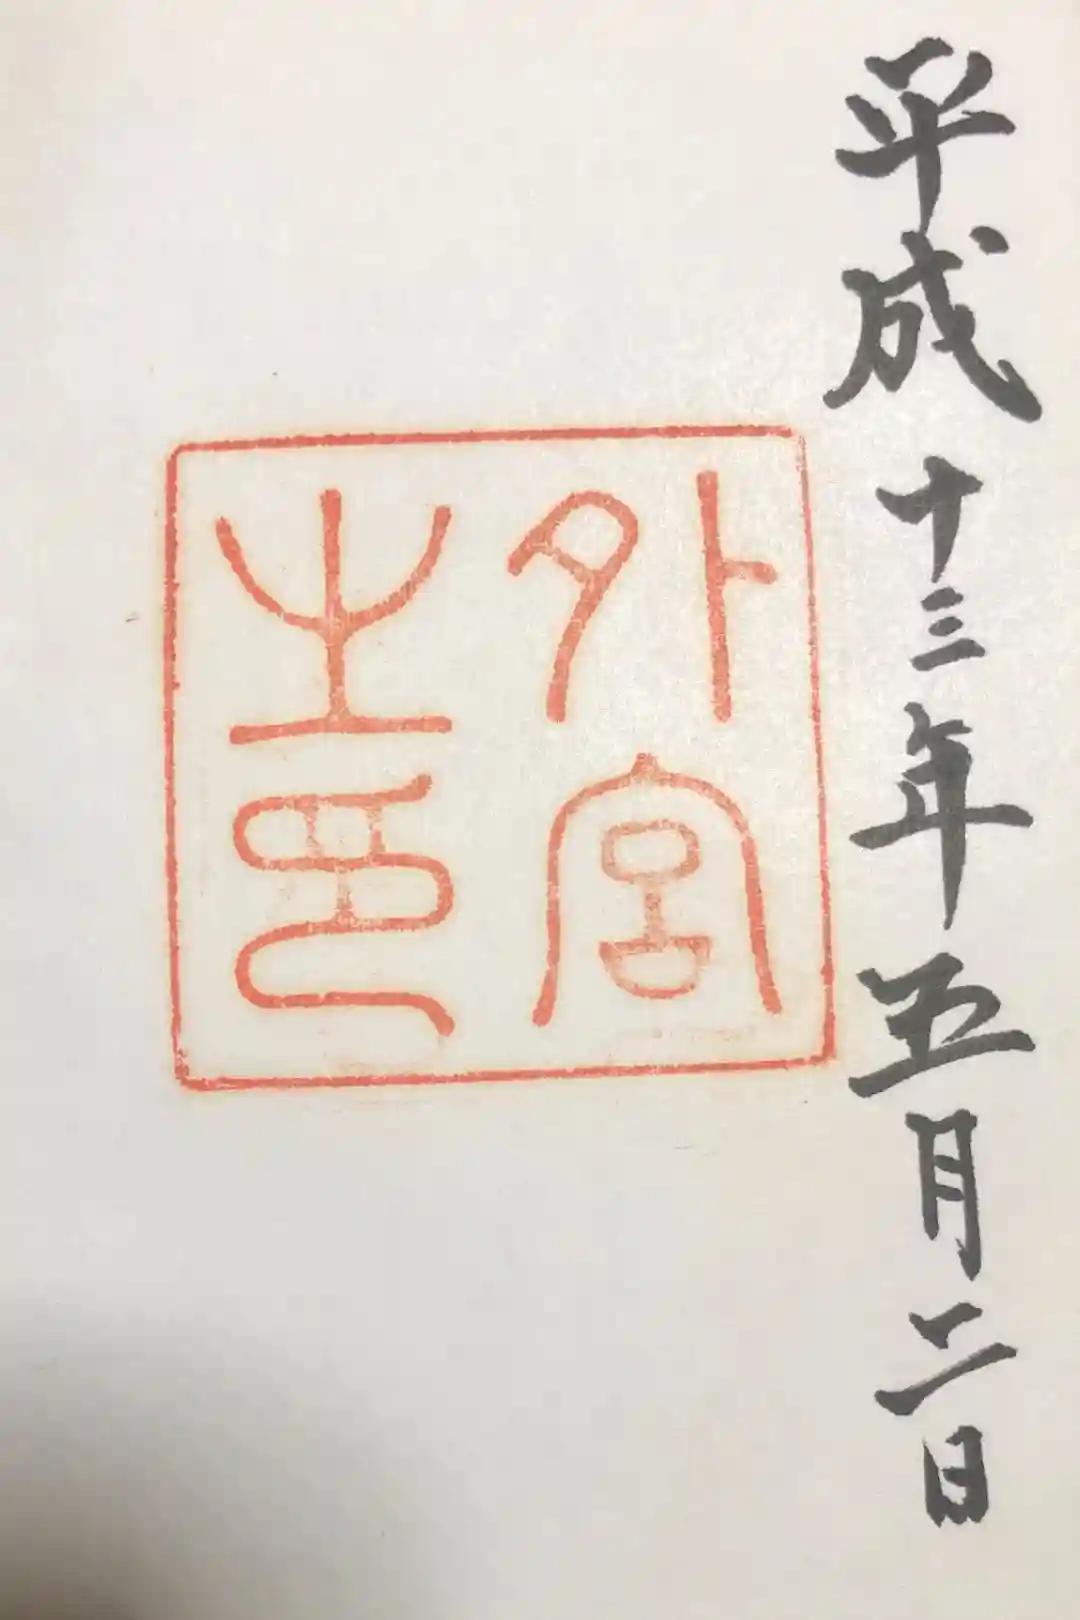 平成十三年五月二日
外宮
之印